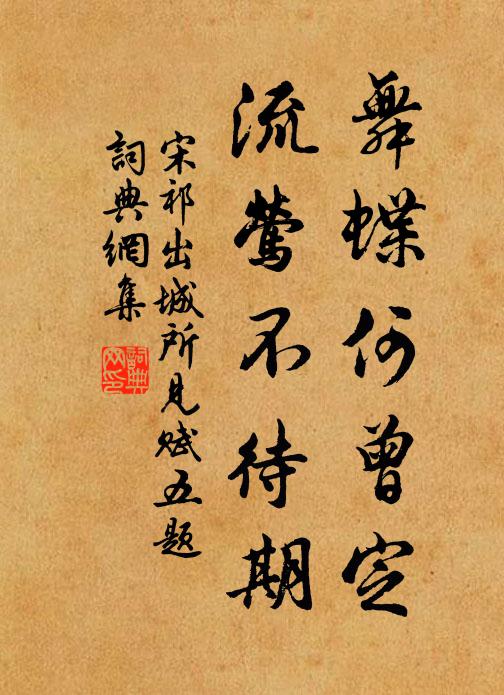 舞蝶何曾定
流莺不待期
宋祁出城所見赋五题
詞典網集
詞典网印